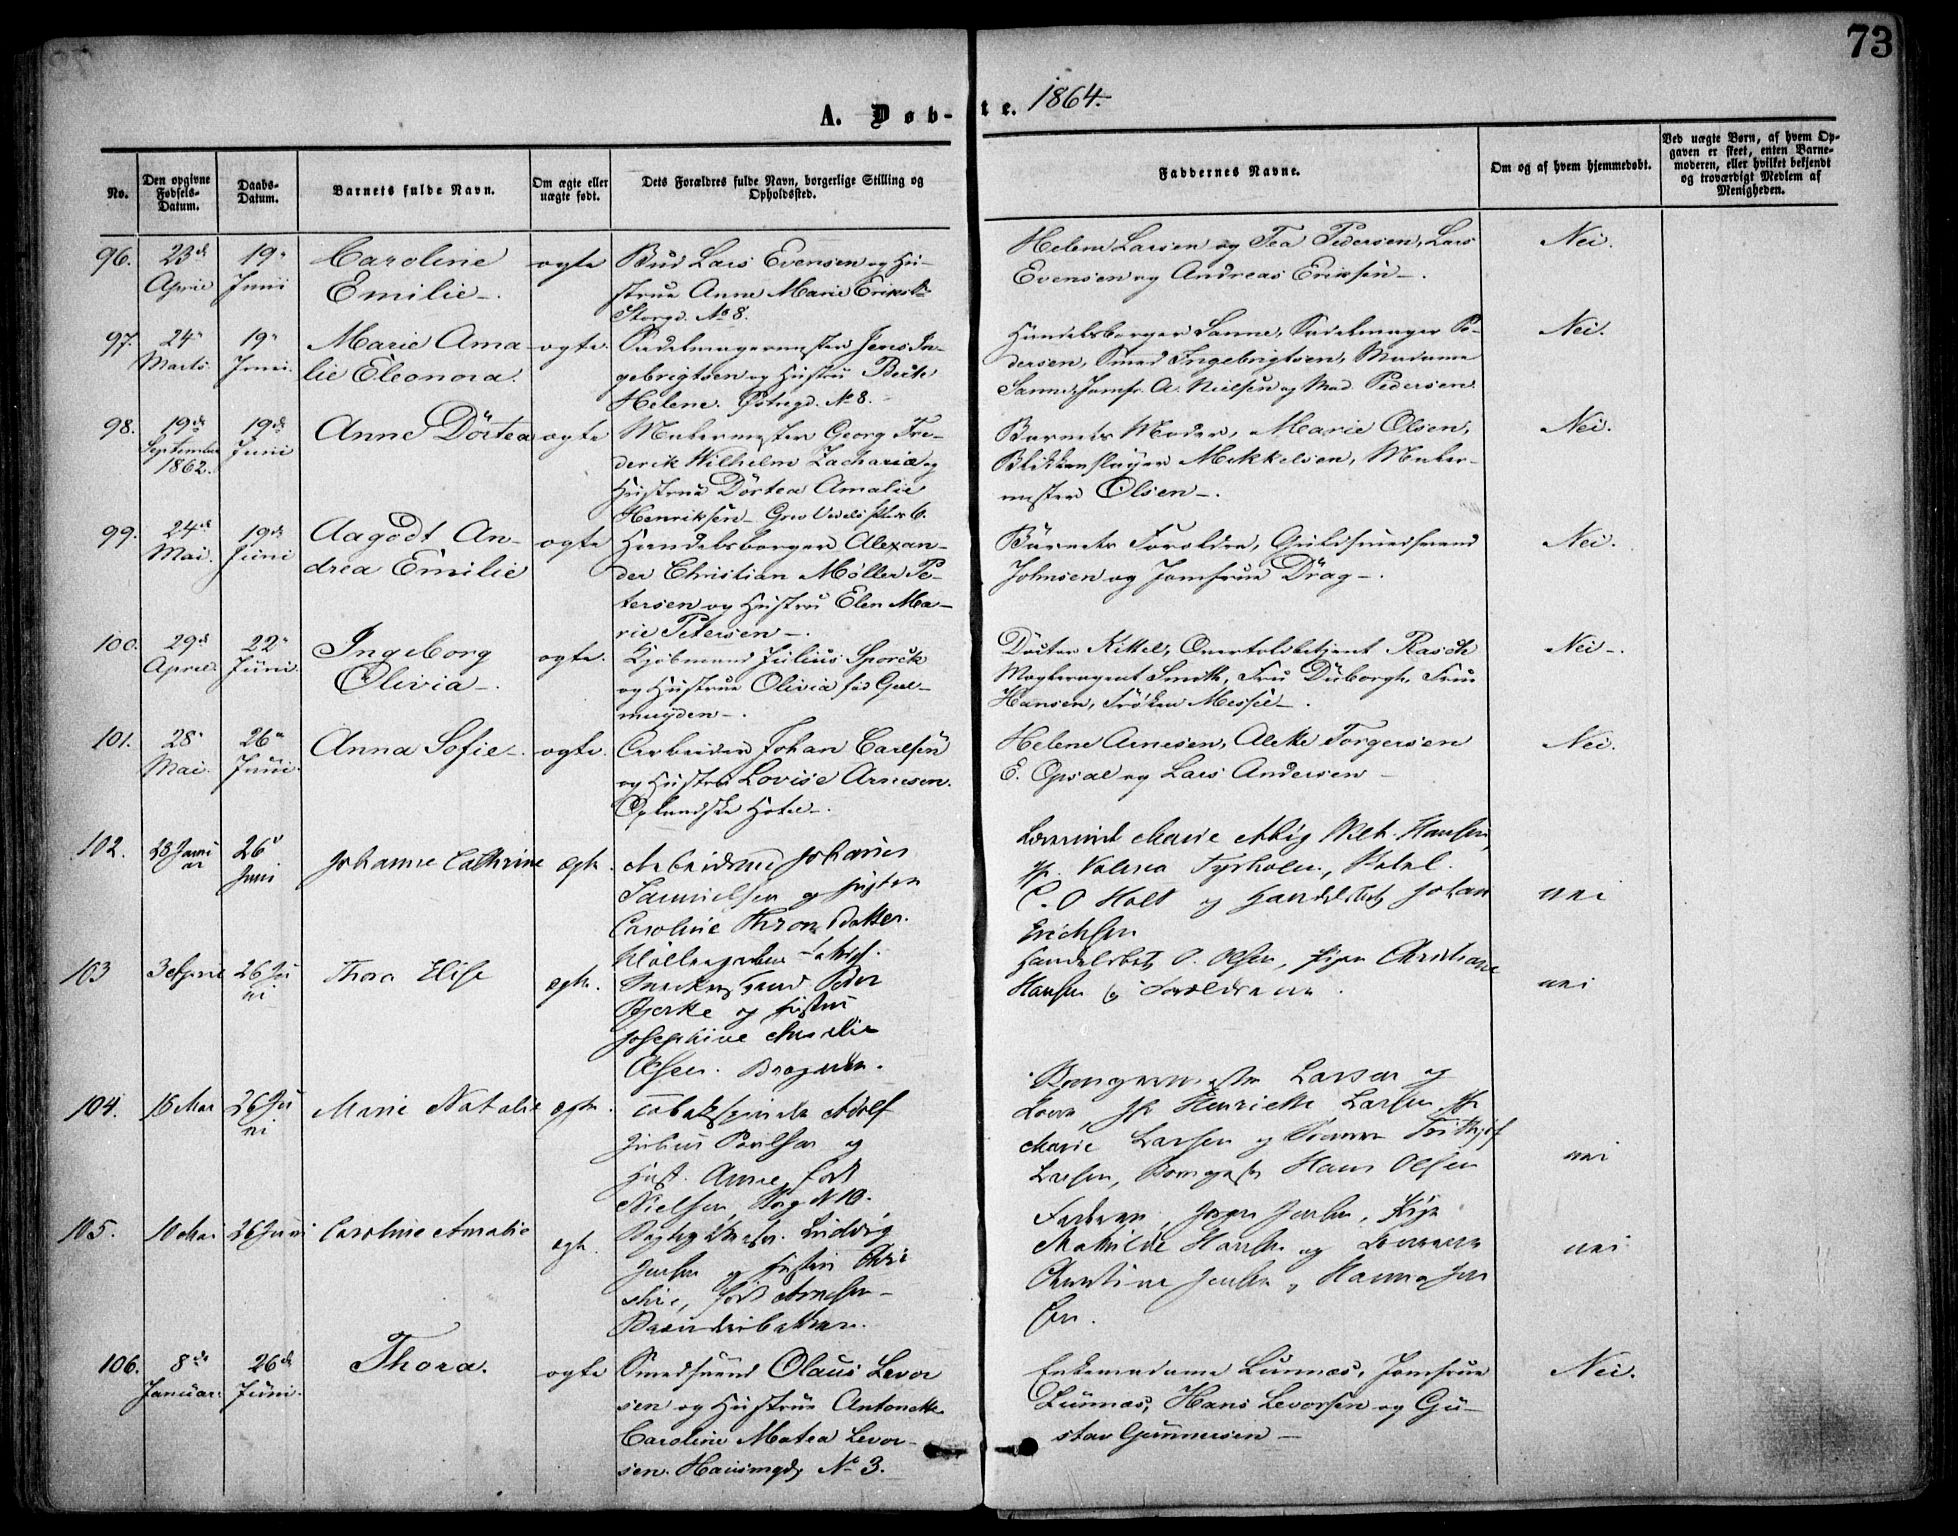 73
A. Døbte. 1864.
No.
Den opgivne Fødsels-Datum.
Daabs-Datum.
Barnets fulde Navn.
Om ægte eller uægte født.
Dets Forældres fulde Navn, borgerlige Stilling og Opholdssted.
Faddernes Navne.
Om og af hvem hjemmedøbt.
Ved uægte Børn, af hvem Opgaven er skeet, enten Barnemoderen, eller hvilket bekjendt og troværdigt Medlem af Menigheden.
96. 23de April 19de Juni Caroline Emilie ægte
Bud Lars Evensen og Hu-
strue Anne Marie Eriks
Storgd. No 8.
Helene Larsen og Tea Pedersen, Lars
Evensen og Andreas Eriksen
Nei.
97. 24 Marts 19 Juni Marie Ama-
lie Eleonora. ægte
Sadelmagermester Jens In-
gebrigtsen og Hustru
Helene. No 8.
Handelsborger Sanne, Sadelmager Pe-
dersen, Smed Ingebrigtsen, Madame
Sanne, Jomfr. A. Nielsen og Mad. Pedersen
Nei.
98. 19de September 1862. 19de Juni Anne Dörtea ægte
Malermester Georg Fre-
derik Wilhelm Zachariæ og
Hustrue Dörtea Amalie
Henriksen
Barnets Moder, Marie Olsen,
Blikkenslager Mekkelsen, Maler-
mester Olsen
Nei.
99. 24de Mai. 19de Juni Aagödt An-
drea Emilie ægte
Handelsborger Alexan-
der Christian Møller Pe-
tersen og Hustru Elen Ma-
rie Petersen
Barnets Forældre, Guldsmedsvend
Johnsen og Jomfrue Drag
Nei.
100. 29de April 22 Juni. Ingeborg
Olivia ægte.
Kjøbmand Julius Sporck
og Hustrue Olivia fød Gul-
muyden
Doctor Kittel, Overtoldbetjent Rasch
Smith, Fru Düborgh, Fru
Hansen, Frøken
Nei
101. 28 Mai. 26 Juni. Anna Sofie ægte.
Arbeider Johan Carlsen
og Hustru Lovise Arnesen.
Oplandske Hotel
Helene Arnesen, Torgersen
E. Opsal og Lars Andersen
Nei.
102. 28 Janu
ar 26 Juni Johanne Cathrine ægte.
Arbeidsmd Johannes
Samuelsen og Hustru
Caroline
Marie Hansen,
C. O Holt og Handelsbet Johan
Erichsen
nei
103 26 Ju
ni Thora Elise ægte.
Snedkersvend Peder
Bjerke og Hustru
Josephine Amalie
Olsen.
Handelsbet O. Olsen, Pigen Christiane
Hansen og Forældrene.
nei
104. 16 Mai 26 Ju
ni Marie Natalie ægte.
Tobakspinder Adolf
Julius Poulsen og
Hust. Anne, født
Nielsen, No 10.
Larsen og
Kone, Henriette Larsen,
Marie Larsen og Frithjof
Larsen, Hans Olsen
nei
105. 10 Mai 26 Juni Caroline Amalie ægte.
Ludvig
Jensen og Hustru
født Arnesen
Faderen, Jensen, Pige
Mathilde Hansen og
Christine Jensen, Hanna Jen
sen.
nei
106. 8de Januar. 26de Juni. Thora. ægte
Smedsvend Olaus Levor
sen og Hustrue Antonette
Caroline Matea Levor-
sen. Hausmgd No 3.
Enkemadame Lunnæs, Jomfrue
Lunnæs, Hans Levorsen og Gu-
stav Gunnersen
Nei.